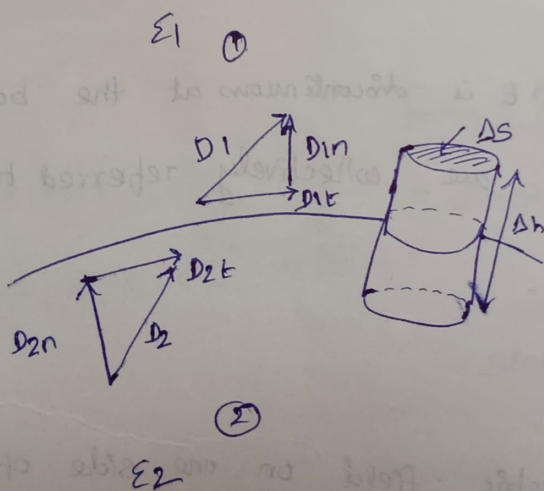 ε1 ①
D1 D1n D1t
ΔS
Δh
D2n D2 D2t
②
ε2